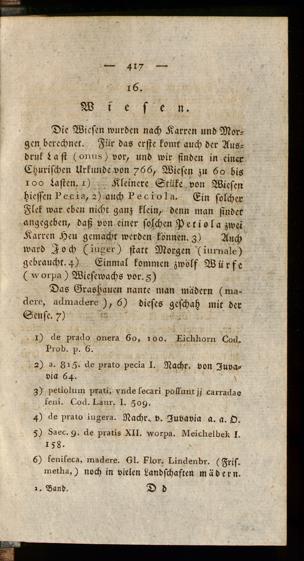 — 417 —
16.
Wiesen.
Die Wiesen wurden nach Karren und Mor-
gen berechnet. Für das erste komt auch der Aus-
druk Last (onus) vor, und wir finden in einer
Churischen Urkunde von 766, Wiesen zu 60 bis
100 Lasten. 1) Kleinere Stüke von Wiesen
hiessen Pecia, 2) auch Peciola. Ein solcher
Flek war eben nicht ganz klein, denn man findet
angegeben, daß von einer solchen Petiola zwei
Karren Heu gemacht werden können. 3) Auch
ward Joch (iuger) statt Morgen (iurnale)
gebraucht. 4) Einmal kommen zwölf Würfe
(worpa) Wiesewachs vor. 5)
Das Grashauen nante man mädern (ma-
dere, admadere), 6) dieses geschah mit der
Sense. 7)
1) de prado onera 60, 100. Eichhorn Cod.
Prob. p. 6.
2) a. 815. de prato pecia I. Nachr. von Juva-
via 64.
3) petiolum prati, vnde fecari poffunt jj carradae
feni. Cod. Laur. I. 509.
4) de prato iugera. Nachr. v. Juvavia a. a. O.
5) Saec. 9. de pratis XII. worpa. Meichelbek I.
158.
6) fenifeca, madere. Gl. Flor. Lindenbr. (Fris.
metha,) noch in vielen Landschaften mädern.
1. Band. D d